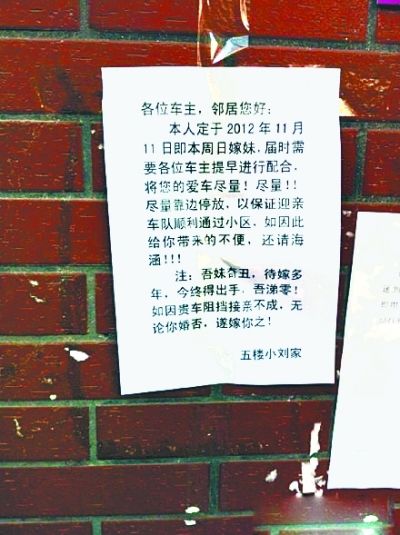 各位车主，邻居您好：
本人定于2012年11月
11日即本周日嫁妹，届时需
要各位车主提早进行配合。
将您的爱车尽量！尽量！！
尽量靠边停放，以保证迎亲
车队顺利通过小区，如因此
给你带来的不便，还请海
涵！！！
注：吾妹奇丑，待嫁多
年，今终得出手，吾涕零！
如因贵车阻挡接亲不成，无
论你婚否，遂嫁你之！
五楼小刘家